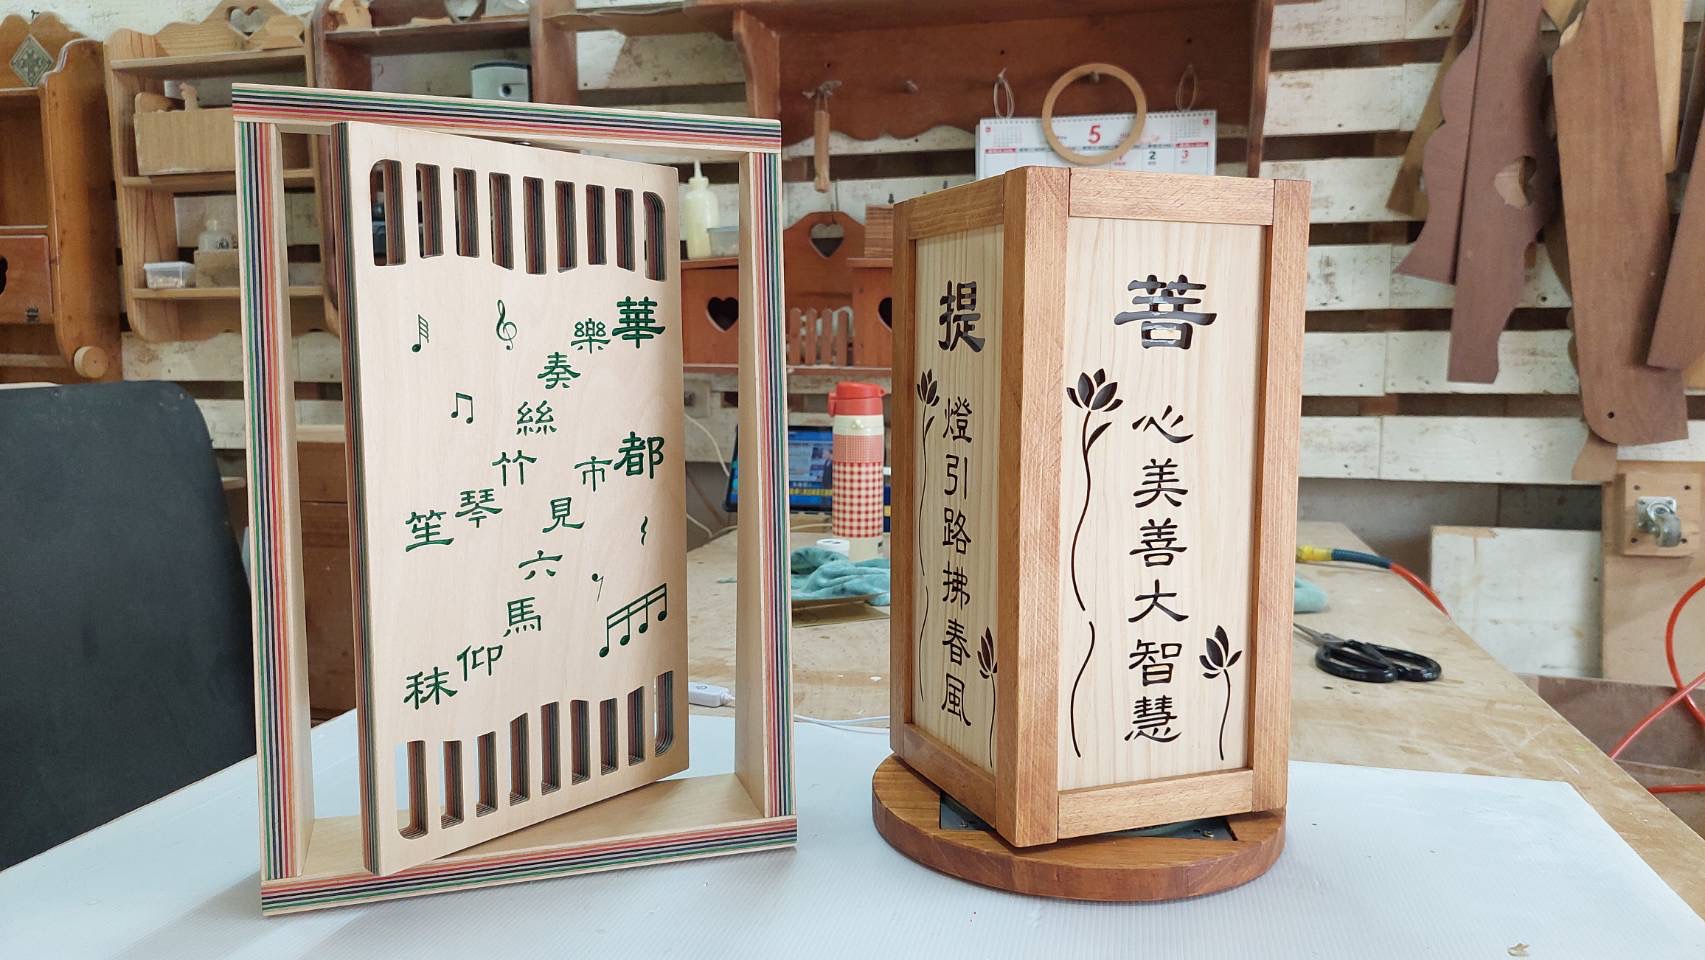 華樂奏絲竹琴笙
都市見六馬仰秣
菩心美善大智慧
提燈引路拂春風
5
2 3